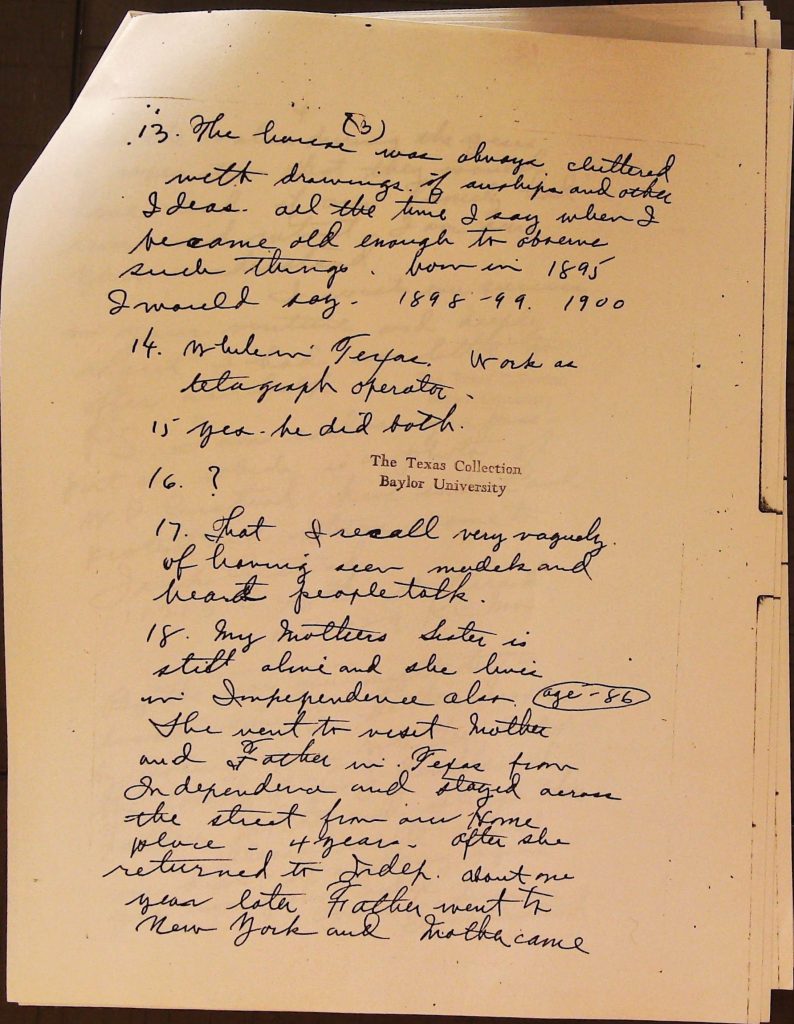 (3)
13. The house was always cluttered
with drawings of airships and other
Ideas. all the time I say when I
became old enough to observe
such things. born in 1895
I would say - 1898-99. 1900
14. While in Texas. Work as
telagraph operator.
15 yes - he did both.
16. ?
The Texas Collection
Baylor University
17. That I recall very vaguely.
of having seen models and
heard people talk.
18. My Mothers Sister is
still alive and she lives
in Impependence also. age - 86
She went to visit Mother
and Father in Texas from
Independence and stayed across
the street from our Home
place - 4 years - after she
returned to Indep. about one
year later Father went to
New York and Mother came